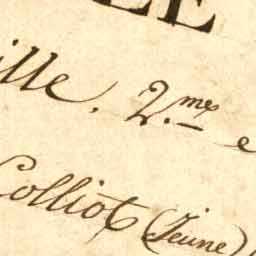 LE
ille. 2.mes e
Colliot (Jeune)